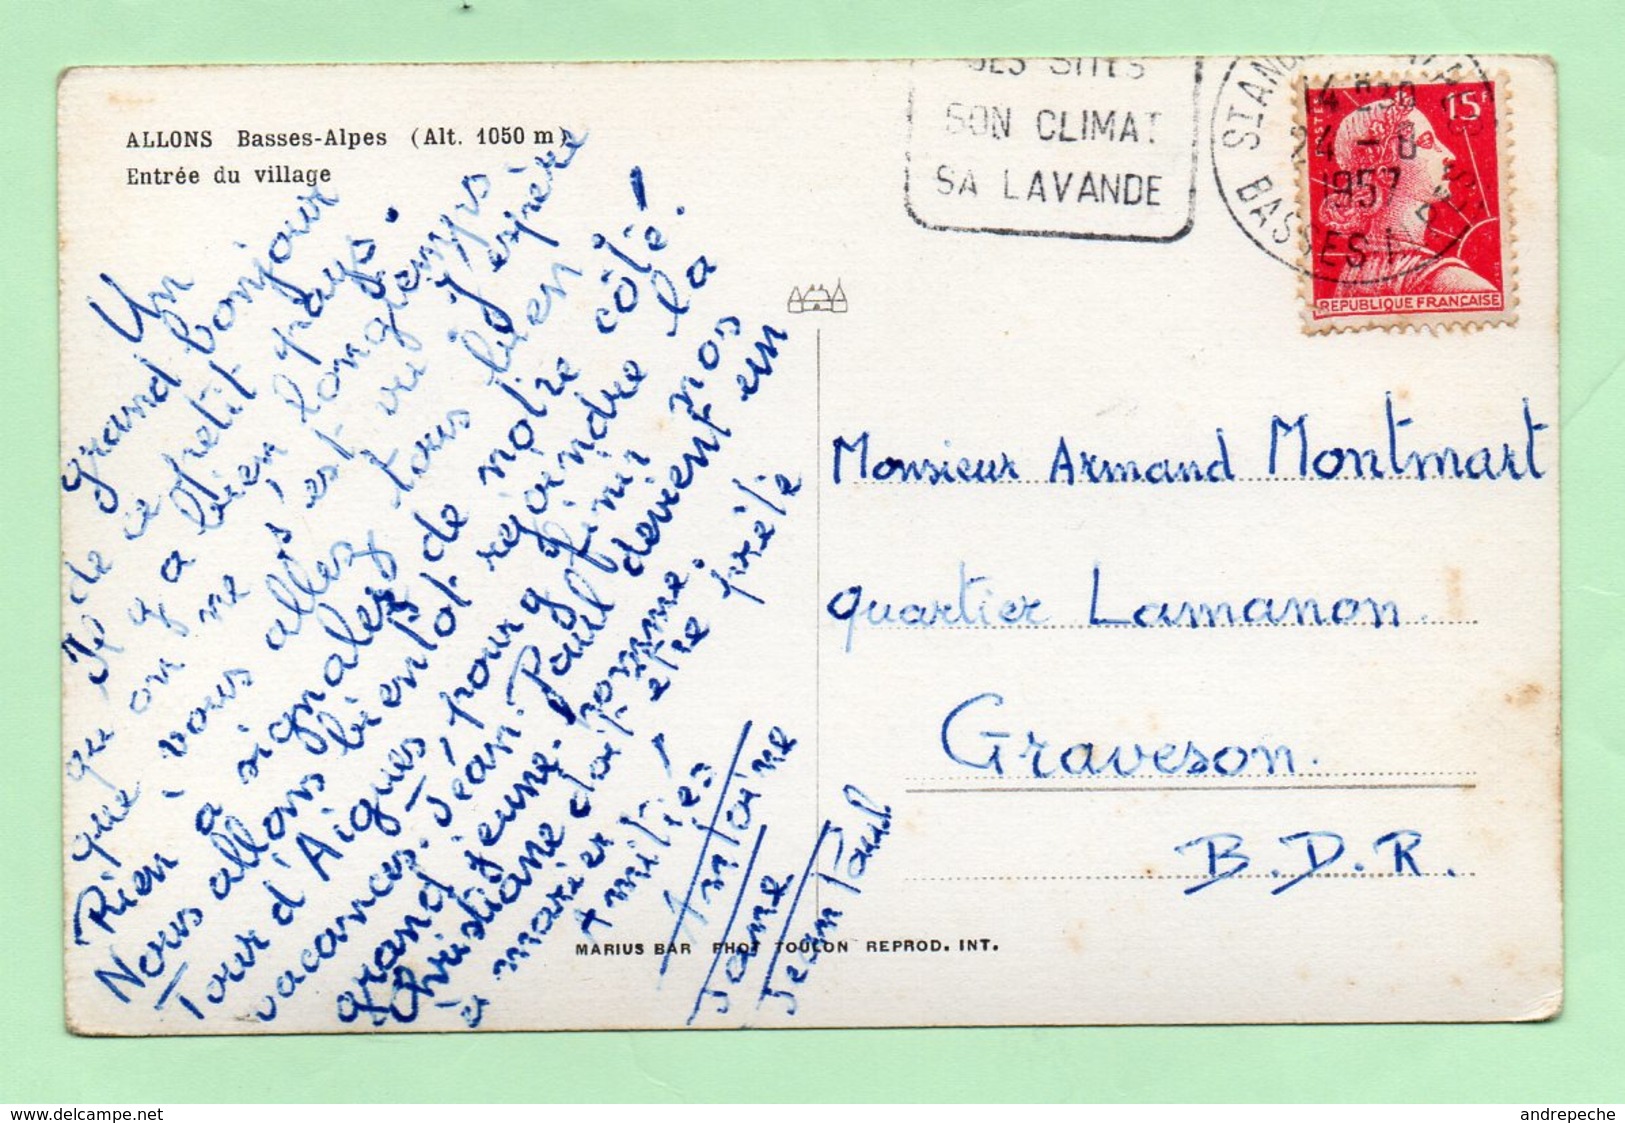 ALLONS Basses-Alpes (Alt. 1050 m)
Entrée du village
Un
grand bonjour
de ce petit pays.
Il y a bien longtemps
qu'on ne s'est vu j'espère
que vous allez tous bien
Rien à signaler de notre côté!
Nous allons bientôt rejoindre la
Tour d'Aigues pour y finir nos
vacances. Jean-Paul devient un
grand jeune-homme.
Christiane doit être prête
à marier!
Amitiés
Antoine
Jane
Jean Paul
MARIUS BAR PHOT TOULON REPROD. INT.
SES SITES
SON CLIMAT
SA LAVANDE
14 H30
24 - 8
1957
BASSES
15F
REPUBLIQUE FRANÇAISE
Monsieur Armand Montmart
quartier Lamanon
Graveson.
B.D.R.
www.delcampe.net
andrepeche